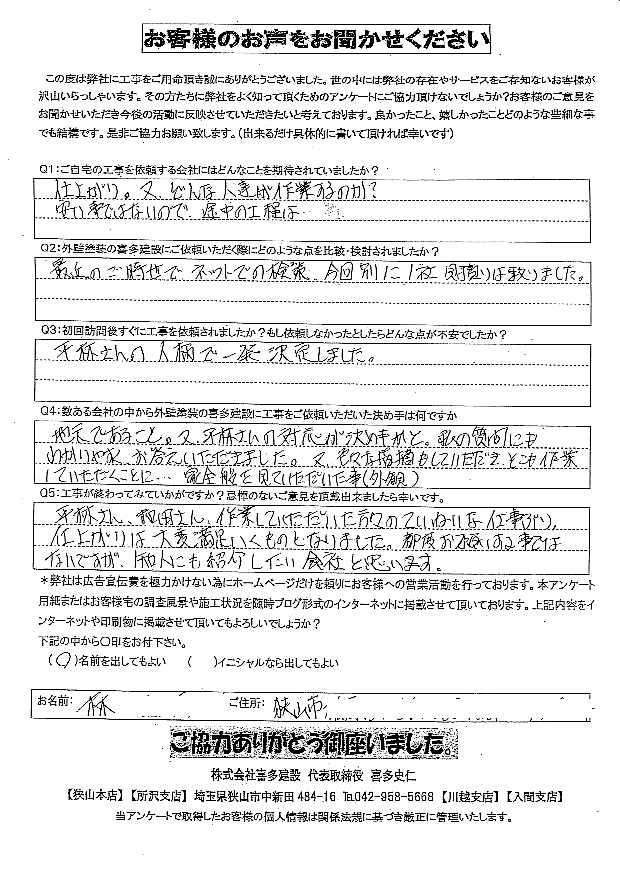 お客様のお声をお聞かせください
この度は弊社に工事をご用命頂き誠にありがとうございました。世の中には弊社の存在やサービスをご存知ないお客様が
沢山いらっしゃいます。その方たちに弊社をよく知って頂くためのアンケートにご協力頂けないでしょうか?お客様のご意見を
お聞かせいただき今後の活動に反映させていただきたいと考えております。良かったこと、嬉しかったことどのような些細な事
でも結構です。是非ご協力お願い致します。(出来るだけ具体的に書いて頂ければ幸いです)
Q1:ご自宅の工事を依頼する会社にはどんなことを期待されていましたか?
仕上がり。又、どんな人達が作業するのか?
安い事ではないので、途中の工程は…
Q2:外壁塗装の喜多建設にご依頼いただく際にどのような点を比較・検討されましたか?
最近のご時世で ネットでの検索、今回別に1社 見積りは取りました。
Q3:初回訪問後すぐに工事を依頼されましたか?もし依頼しなかったとしたらどんな点が不安でしたか?
平林さんの人柄で一発決定しました。
Q4:数ある会社の中から外壁塗装の喜多建設に工事をご依頼いただいた決め手は何ですか
地元であること。又、平林さんの対応が決め手かと。私の質問にも
わかりやすく お答えいただきました。又、色々な指摘もしていただき、とこも作業
していただくことに… 完全般を見ていただいた事(外観)
Q5:工事が終わってみていかがですか?忌憚のないご意見を頂戴出来ましたら幸いです。
平林さん、和田さん、作業していただいた設のていねいな仕事ぶり、
仕上がりは大変満足いくものとなりました。都度お願いする事では
ないですが、他人にも紹介したい会社と思います。
*弊社は広告宣伝費を極力かけない為にホームページだけを頼りにお客様への営業活動を行っております。本アンケート
用紙またはお客様宅の調査風景や施工状況を随時ブログ形式のインターネットに掲載させて頂いております。上記内容をイ
ンターネットや印刷物に掲載させて頂いてもよろしいでしょうか?
下記の中から〇印をお付下さい。
(〇)名前を出してもよい ( )イニシャルなら出してもよい
お名前: 林 ご住所: 狭山市
ご協力ありがとう御座いました。
株式会社喜多建設 代表取締役 喜多史仁
【狭山本店】【所沢支店】埼玉県狭山市中新田484-16 ℡042-958-5668【川越支店】【入間支店】
当アンケートで取得したお客様の個人情報は関係法規に基づき厳正に管理いたします。